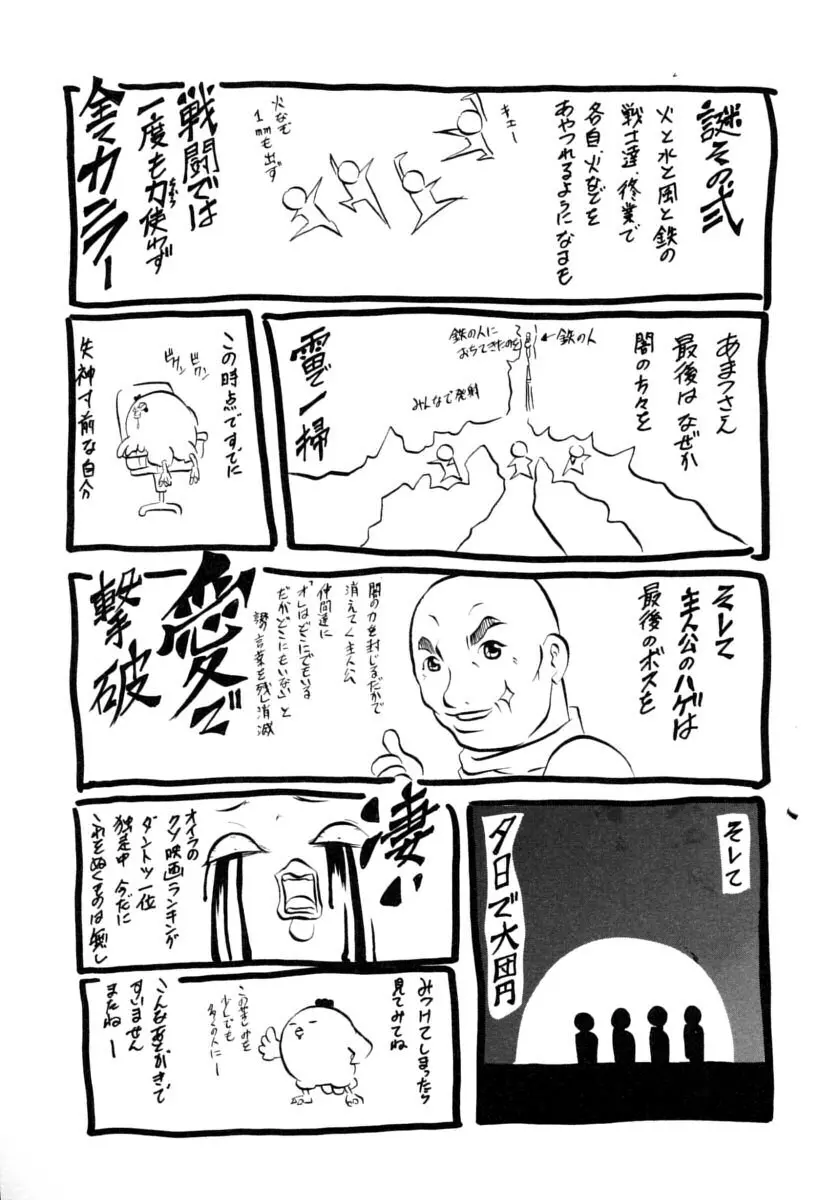 謎その弐
火と水と風と鉄の
戦士達、修業で
各自、火などを
あやつれるようになるも
キエー
火なぞ
1mmも出ず
戦闘では
一度も力使わず
全てカラー
あまつさえ
最後はなぜか
闇の方々を
←鉄の人
鉄の人に
おちてきたのを
みんなで発射
雷で一掃
この時点ですでに
ビクン
ビクン
失神寸前な自分
そして
主人公のハゲは
最後のボスを
闇の力を封じるだかで
消えてく主人公
仲間達に
「オレはどこにでもいる
だがどこにもいない」と
謎の言葉を残し消滅
愛で
撃破
そして
夕日で大団円
凄い
オイラの
クソ映画ランキングが
ダントツ一位
独走中 今だに
これをぬくものは無し
みつけてしまったら
見てみてね
この苦しみを
少しでも
多くの人にー
こんなあとがきで
すいません
またねー